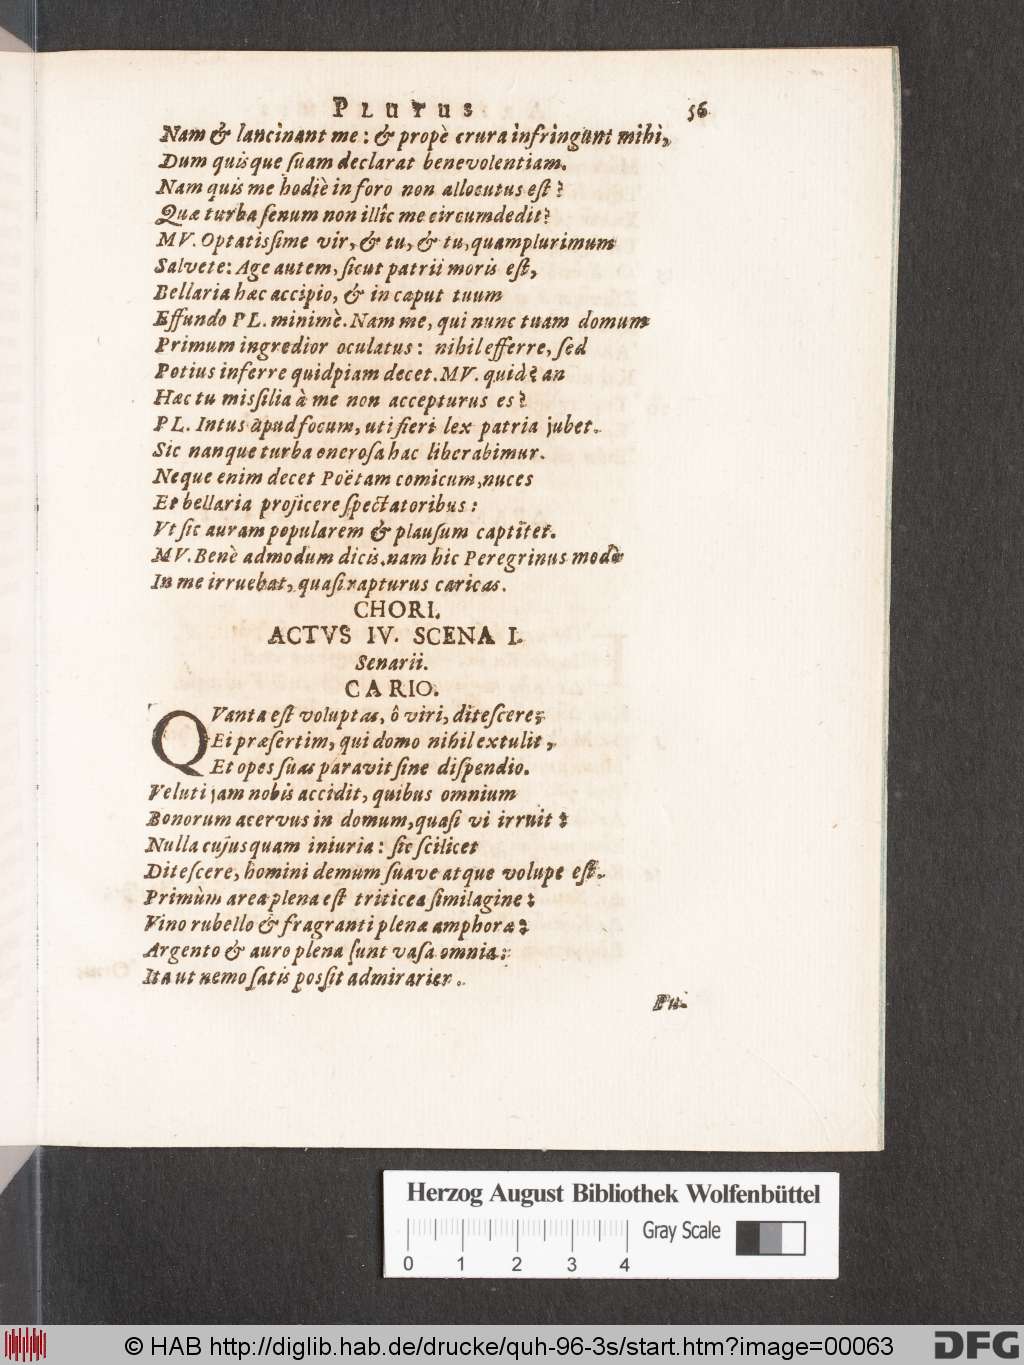 PLUTUS 56
Nam & lancinant me: & propè crura infringunt mihi,
Dum quisque ſuam declarat benevolentiam.
Nam quis me hodiè in foro non allocutus eſt?
Quæ turba ſenum non illîc me circumdedit?
MV. Optatisſime vir, & tu, & tu, quamplurimum
Salvete: Age autem, ſicut patrii moris eſt,
Bellaria hæc accipio, & in caput tuum
Effundo PL. minimè. Nam me, qui nunc tuam domum
Primum ingredior oculatus: nihil efferre, ſed
Potius inferre quidpiam decet. MV. quid? an
Hæc tu misſilia à me non accepturus es?
PL. Intus apud focum, uti fieri lex patria jubet.
Sic nanque turba onerosa hac liberabimur.
Neque enim decet Poëtam comicum, nuces
Et bellaria projicere ſpectatoribus:
Vt ſic auram popularem & plauſum captitet.
MV. Benè admodum dicis. nam hic Peregrinus modò
In me irruebat, quaſi rapturus caricas.
CHORI.
ACTVS IV. SCENA I.
Senarii.
CARIO.
QVanta eſt voluptas, ô viri, diteſcere;
Ei præſertim, qui domo nihil extulit,
Et opes ſuas paravit ſine diſpendio.
Veluti jam nobis accidit, quibus omnium
Bonorum acervus in domum, quaſi vi irruit:
Nulla cujusquam iniuria: ſic ſcilicet
Diteſcere, homini demum ſuave atque volupe eſt.
Primùm area plena eſt triticea ſimilagine:
Vino rubello & fragranti plenæ amphoræ:
Argento & auro plena ſunt vaſa omnia:
Ita ut nemo ſatis posſit admirarier.
Pu-
Herzog August Bibliothek Wolfenbüttel
Gray Scale
0 1 2 3 4
© HAB http://diglib.hab.de/drucke/quh-96-3s/start.htm?image=00063
DFG